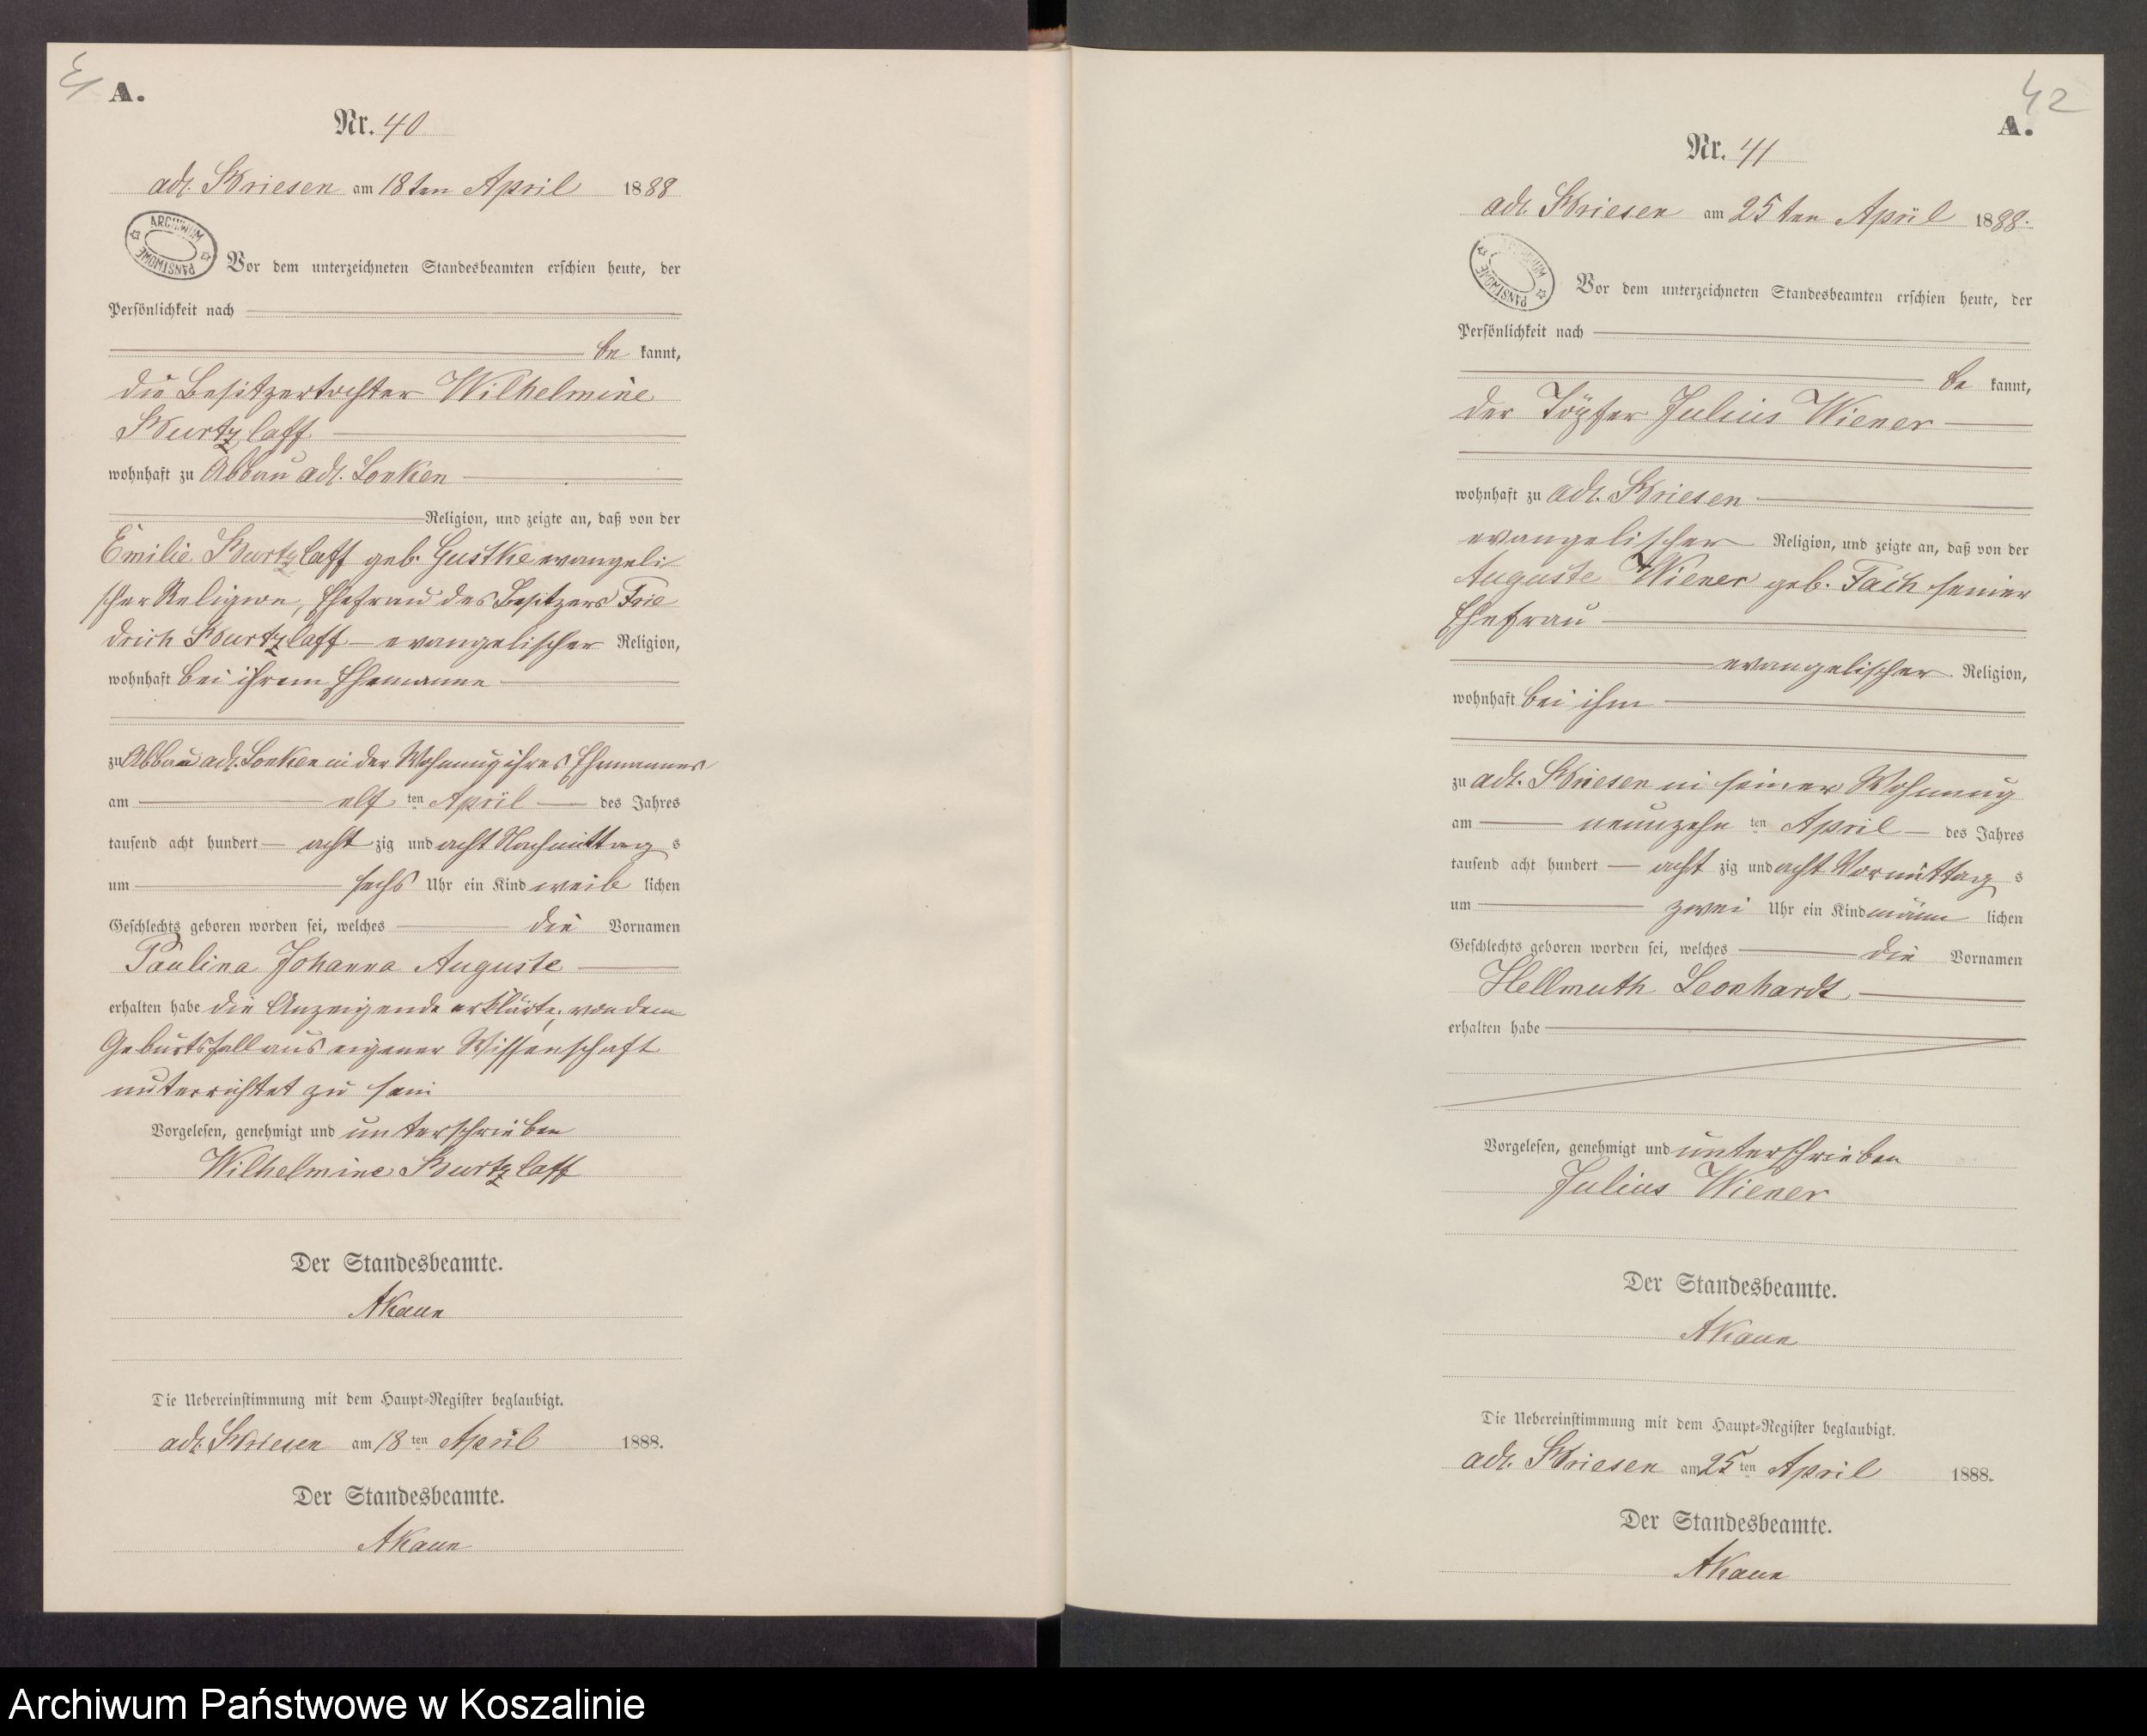 A.
Nr. 40
adl. Kriesen am 18ten April 1888
ARCHIWUM PAŃSTWOWE
Vor dem unterzeichneten Standesbeamten erschien heute, der
Persönlichkeit nach
be kannt,
die Besitzertochter Wilhelmine
Kurtzlaff
wohnhaft zu Abbau adl. Lonken
Religion, und zeigte an, daß von der
Emilie Kurtzlaff geb. Gustke evangeli
scher Religion, Ehefrau des Besitzers Frie
drich Kurtzlaff evangelischer Religion,
wohnhaft bei ihrem Ehemanne
zu Abbau adl. Lonken in der Wohnung ihres Ehemannes
am elf ten April des Jahres
tausend acht hundert acht zig und acht Nachmittag s
um sechs Uhr ein Kind weib lichen
Geschlechts geboren worden sei, welches die Vornamen
Paulina Johanna Auguste
erhalten habe die Anzeigende erklärte, von dem
Geburtsfall aus eigener Wissenschaft
unterrichtet zu sein
Vorgelesen, genehmigt und unterschrieben
Wilhelmine Kurtzlaff
Der Standesbeamte.
AKaun
Die Uebereinstimmung mit dem Haupt-Register beglaubigt.
adl. Kriesen am 18 ten April 1888.
Der Standesbeamte.
AKaun
42
A.
Nr. 41
adl. Kriesen am 25ten April 1888.
ARCHIWUM PAŃSTWOWE
Vor dem unterzeichneten Standesbeamten erschien heute, der
Persönlichkeit nach
be kannt,
der Töpfer Julius Wiener
wohnhaft zu adl. Kriesen
evangelischer Religion, und zeigte an, daß von der
Auguste Wiener geb. Fach seiner
Ehefrau
evangelischer Religion,
wohnhaft bei ihm
zu adl. Kriesen in seiner Wohnung
am neunzehn ten April des Jahres
tausend acht hundert acht zig und acht Vormittag s
um zwei Uhr ein Kind männ lichen
Geschlechts geboren worden sei, welches die Vornamen
Hellmuth Leonhardt
erhalten habe
Vorgelesen, genehmigt und unterschrieben
Julius Wiener
Der Standesbeamte.
AKaun
Die Uebereinstimmung mit dem Haupt-Register beglaubigt.
adl. Kriesen am 25 ten April 1888.
Der Standesbeamte.
AKaun
Archiwum Państwowe w Koszalinie